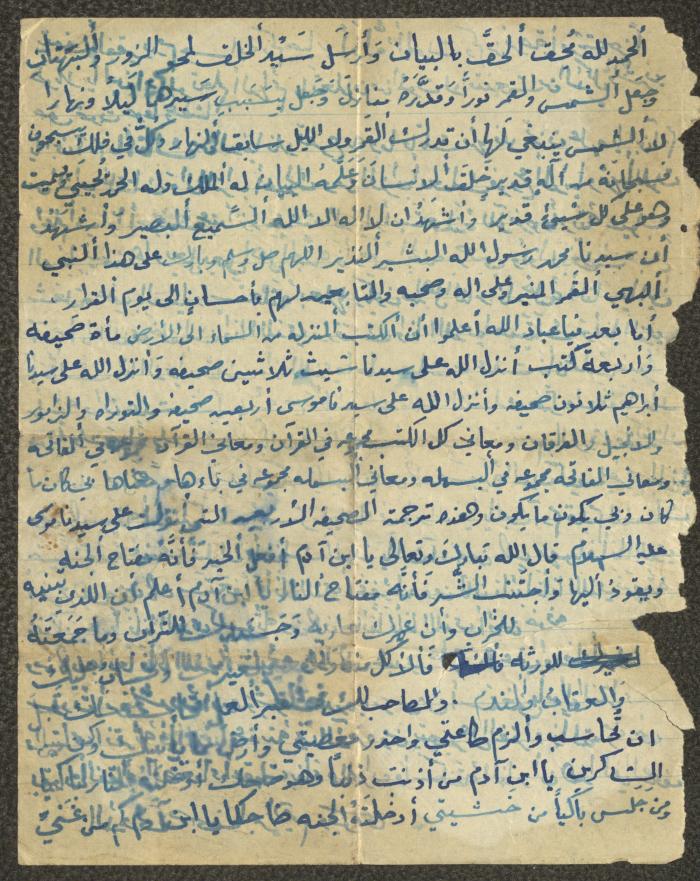 الحمد لله محق الحقَّ بالبيان وأرسل سيد الخلق لمحو الزور والبهتان
وجعل الشمس والقمر نوراً وقدَّره منازل وجعل سيرهما ليلا ونهارا
لا الشمس ينبغي لها أن تدرك القمر ولا الليل سابق النهار وكل في فلك يسبحون
فسبحانه من إله قدير خلق الانسان وعلمه البيان له الملك وله الحمد يحيي ويميت
وهو على كل شيئ قدير وأشهد ان لا اله الا الله السميع البصير وأشهد
أن سيدنا محمد رسول الله البشير النذير اللهم صل وسلم وبارك على هذا النبي
البهي القمر المنير وعلى اله وصحبه والتابعين لهم بأحسان الى يوم القرار
أما بعد فيا عباد الله أعلموا أن الكتب المنزلة من السماء الى الأرض مأة صحيفه
وأربعة كتب أنزل الله على سيدنا شيث ثلاثين صحيفه وأنزل الله على سيدنا
أبراهيم ثلاثون صحيفه وأنزل الله على سيدنا موسى أربعين صحيفه والتوراه والزابور
والانجيل والفرقان ومعاني كل الكتب مجموعه في القرآن ومعاني القرآن مجموعه في الفاتحه
ومعاني الفاتحه مجموعه في البسمله ومعاني البسمله مجموعه في باءها ومعناها بي كان ما
كان وبي يكون ما يكون وهذه ترجمة الصحيفه الاربعين التي أنزلت على سيدنا موسى
عليه السلام قال الله تبارك وتعالى يا ابن آدم أفعل الخير فأنَّه مفتاح الجنه
ويقود أليها وأجتنب الشر فأنَّه مفتاح النار يا ابن آدم أعلم أن اللذي تبنيه
للخراب وأن عمرك للخراب وجسدك للتراب وما جمعته
للورثه فالأكل
والعقاب والندم والمصاحب لك في القبر العمل
ان تحاسب وألزم طاعتي واحذر معصيتي وأرض بما وكن من
الشاكرين يا ابن آدم من أذنب ذنباً وهو ضاحك أدخلته النار باكياً
ومن جلس باكياً من خشيتي أدخلته الجنه ضاحكا يا ابن آدم كم من غني